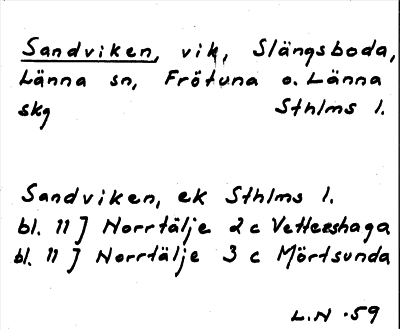 Sandviken, vik, Slängsboda,
Länna sn, Frötuna o. Länna
skg Sthlms l.
Sandviken, ek Sthlms l.
bl. 11 J Norrtälje 2 c Vettershaga
bl. 11 J Norrtälje 3 c Mörtsunda
L.N. -59